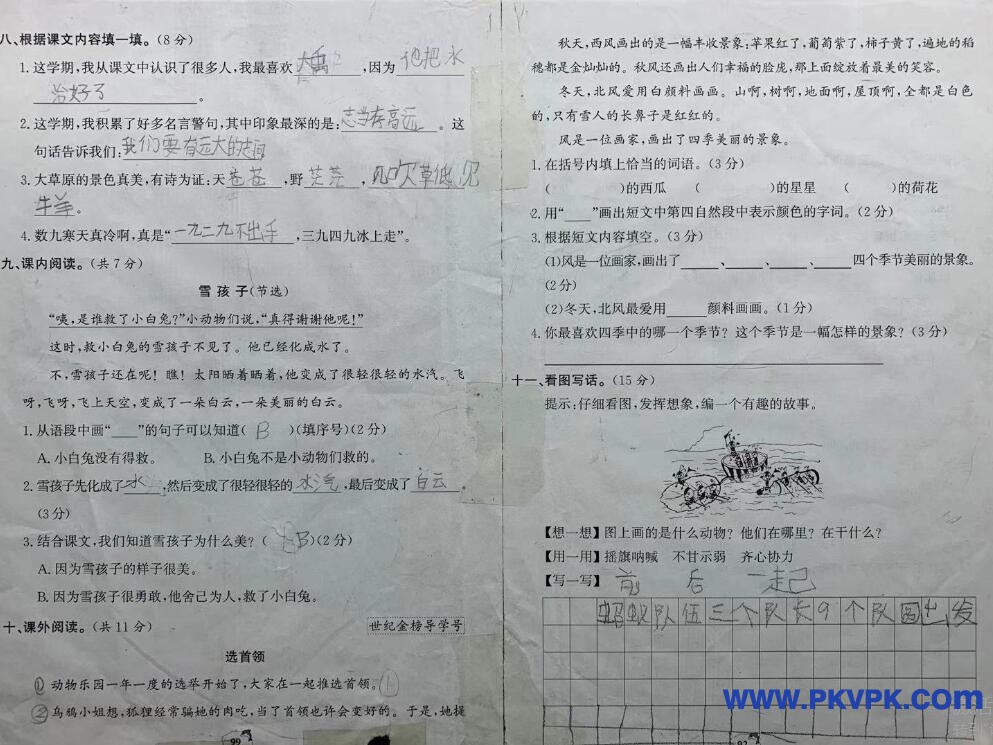 八、根据课文内容填一填。(8分)
1.这学期,我从课文中认识了很多人,我最喜欢大禹,因为他把水
治好了。
2.这学期,我积累了好多名言警句,其中印象最深的是:志当存高远。这
句话告诉我们:我们要有远大的志向
3.大草原的景色真美,有诗为证:天苍苍,野茫茫,风吹草低见
牛羊。
4.数九寒天真冷啊,真是“一九二九不出手,三九四九冰上走”。
九、课内阅读。(共7分)
雪孩子(节选)
“咦,是谁救了小白兔?”小动物们说,“真得谢谢他呢!”
这时,救小白兔的雪孩子不见了。他已经化成水了。
不,雪孩子还在呢!瞧!太阳晒着晒着,他变成了很轻很轻的水汽。飞
呀,飞呀,飞上天空,变成了一朵白云,一朵美丽的白云。
1.从语段中画“___”的句子可以知道( B )(填序号)(2分)
A.小白兔没有得救。 B.小白兔不是小动物们救的。
2.雪孩子先化成了水,然后变成了很轻很轻的水汽,最后变成了白云。
(3分)
3.结合课文,我们知道雪孩子为什么美?( B )(2分)
A.因为雪孩子的样子很美。
B.因为雪孩子很勇敢,他舍己为人,救了小白兔。
十、课外阅读。(共11分) 世纪金榜导学号
选首领
① 动物乐园一年一度的选举开始了,大家在一起推选首领。
② 乌鸦小姐想,狐狸经常骗她的肉吃,当了首领也许会变好的。于是,她提
99
秋天,西风画出的是一幅丰收景象:苹果红了,葡萄紫了,柿子黄了,遍地的稻
穗都是金灿灿的。秋风还画出人们幸福的脸庞,那上面绽放着最美的笑容。
冬天,北风爱用白颜料画画。山啊,树啊,地面啊,屋顶啊,全都是白色
的,只有雪人的长鼻子是红红的。
风是一位画家,画出了四季美丽的景象。
1.在括号内填上恰当的词语。(3分)
( )的西瓜 ( )的星星 ( )的荷花
2.用“___”画出短文中第四自然段中表示颜色的字词。(2分)
3.根据短文内容填空。(3分)
(1)风是一位画家,画出了____、____、____、____四个季节美丽的景象。
(2分)
(2)冬天,北风最爱用____颜料画画。(1分)
4.你最喜欢四季中的哪一个季节?这个季节是一幅怎样的景象?(3分)
十一、看图写话。(15分)
提示:仔细看图,发挥想象,编一个有趣的故事。
【想一想】图上画的是什么动物?他们在哪里?在干什么?
【用一用】摇旗呐喊 不甘示弱 齐心协力
【写一写】前 后 一起
蚂蚁队伍三个队长9个队员出发
WWW.PKVPK.com